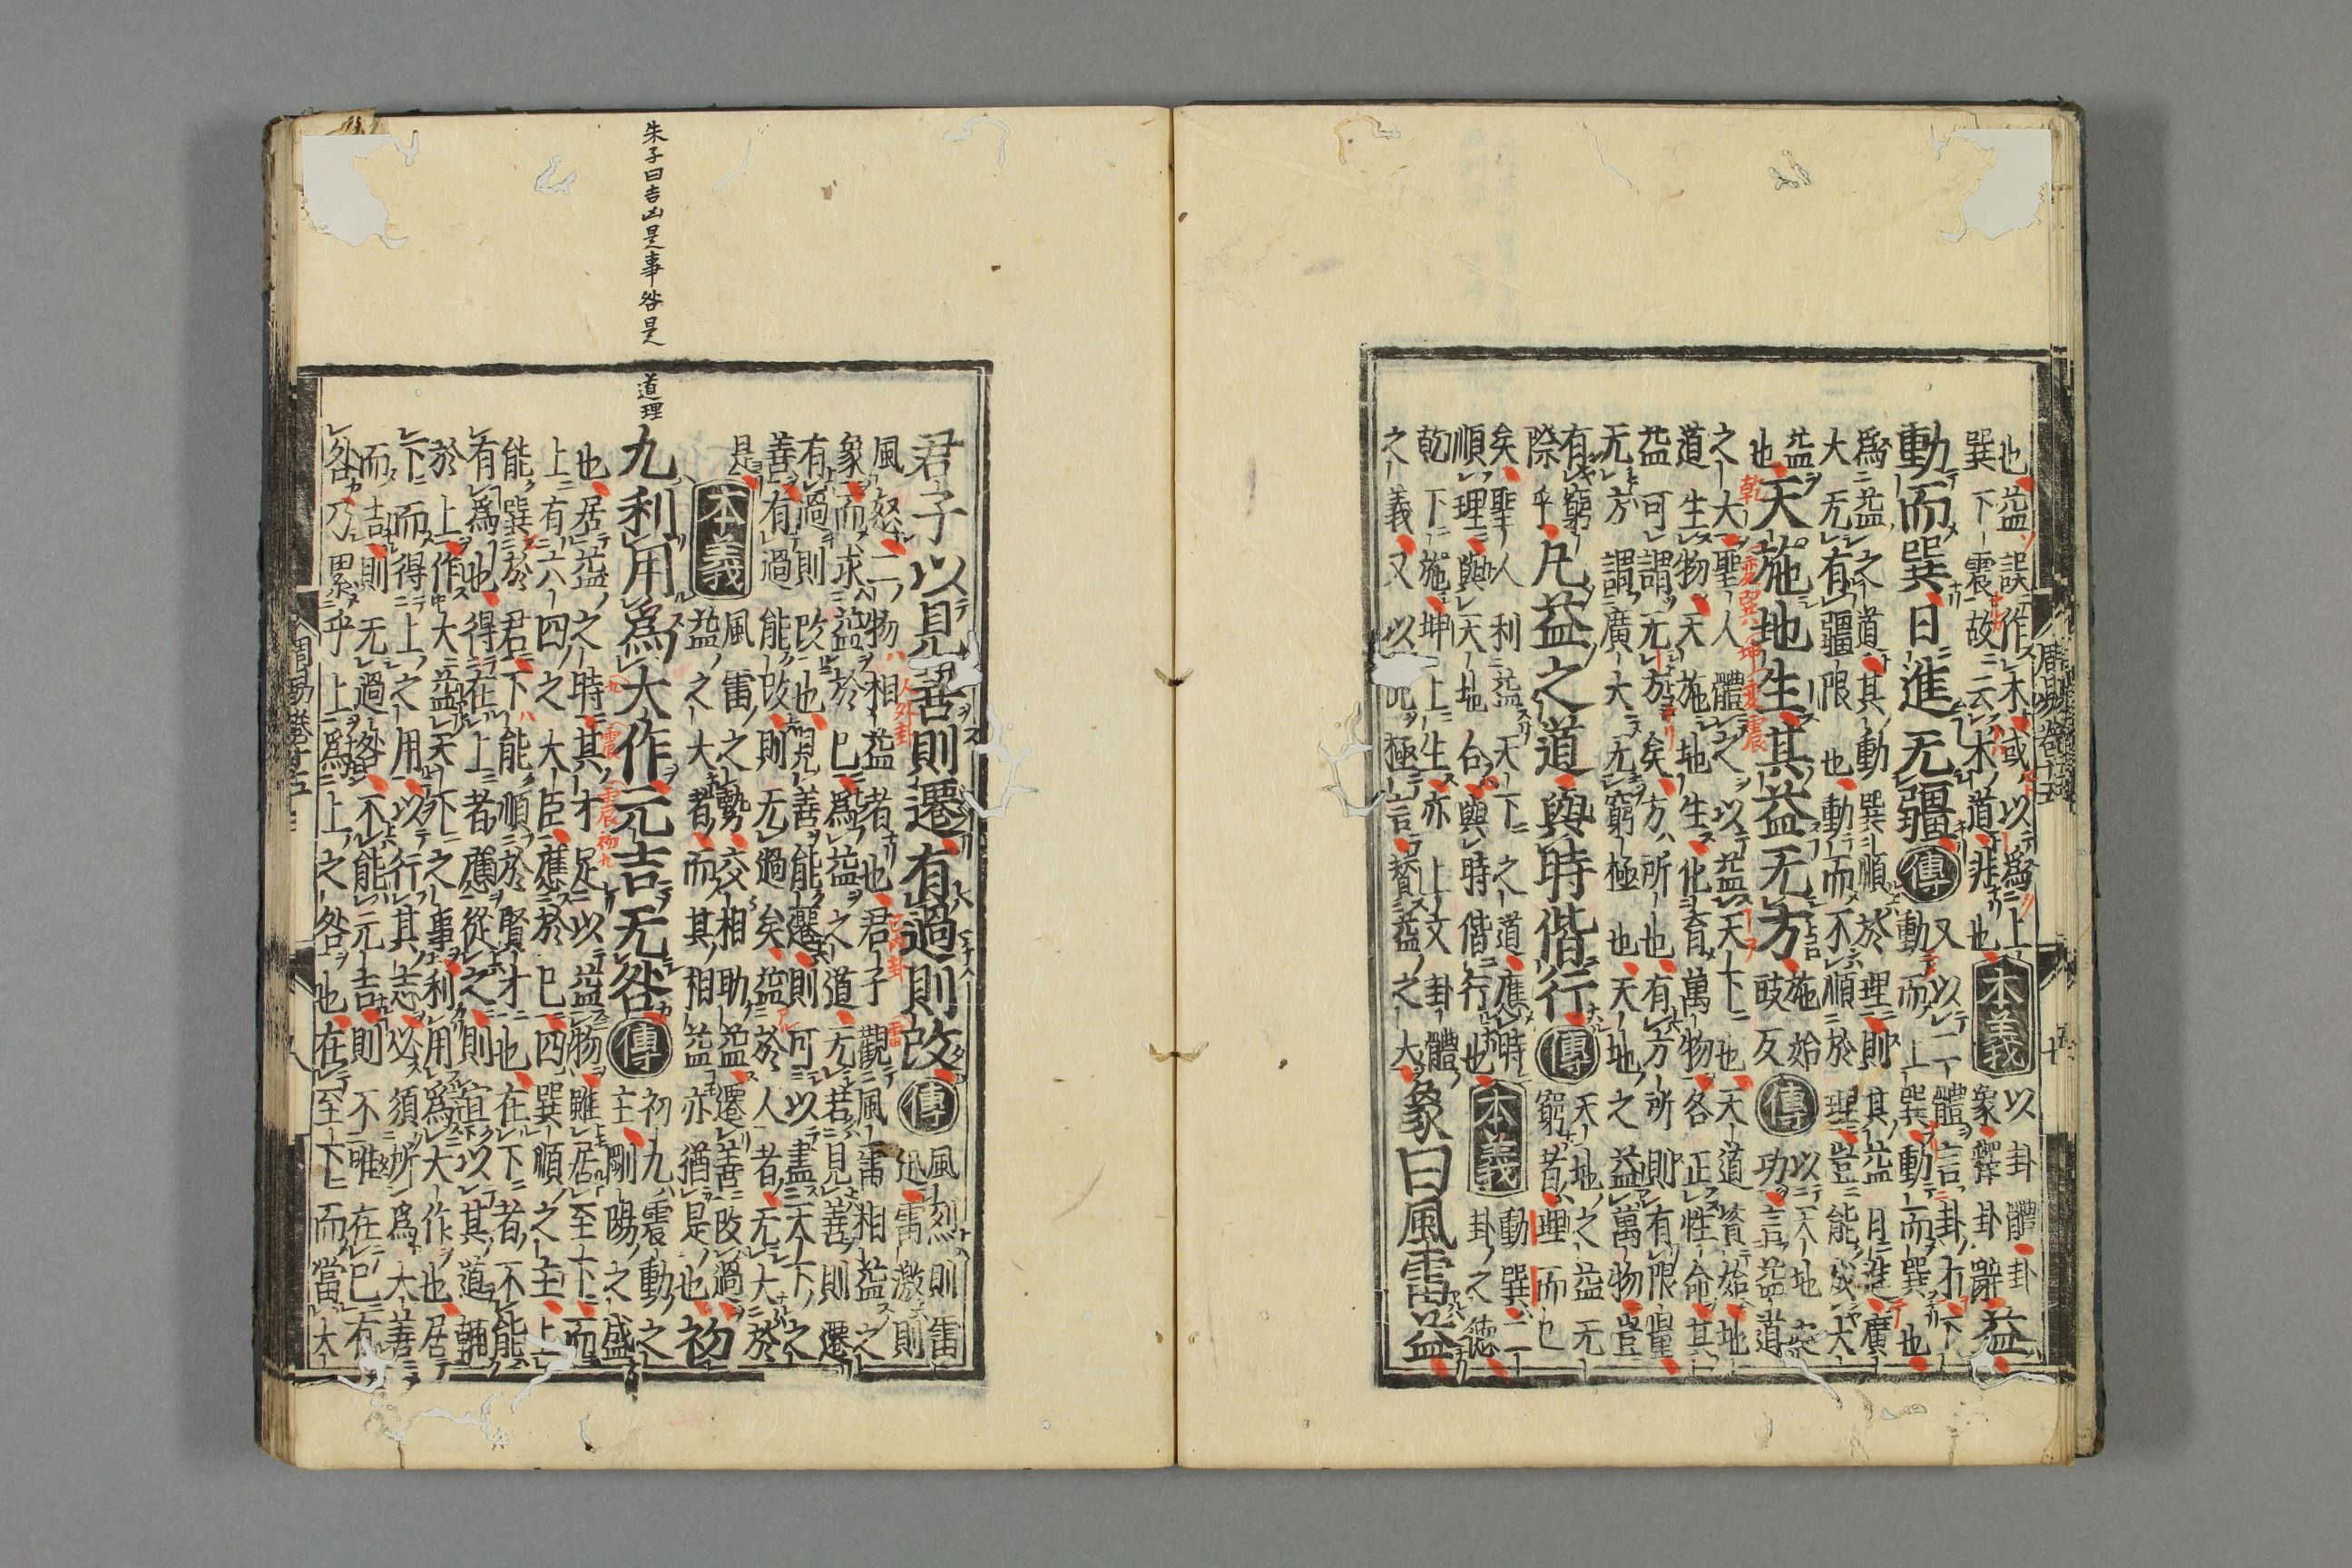 也益誤作木或以爲上
巽下震故云木道非也
本義
以卦體卦
彖釋卦辭
益
動而巽日進无疆
傳
又以二體言卦才下
動而上巽動而巽也
爲益之道其動巽順於理則其益日進廣
大无有疆限也動而不順於理豈能成大
益
也
天施地生其益无方
施始
豉反
傳
以天地
功言益道
之大聖人體之以益天下也天道資始地
道生物天施地生化育萬物各正性命其
益可謂无方矣方所也有方所則有限量
无方謂廣大无窮極也天地之益萬物豈
有窮
際乎
凡益之道與時偕行
傳
天地之益无
窮者理而已
矣聖人利益天下之道應時
順理與天地合與時偕行也
本義
動巽二
卦之德
乾下施坤上生亦上文卦體
之義又以此極言贊益之大
象曰風雷益
君子以見善則遷有過則改
傳
風烈則雷
迅雷激則
風怒二物相益者也君子觀風雷相益之
象而求益於己爲益之道无若見善則遷
有過則改也見善能遷則可以盡天下之
善有過能改則无過矣益於人者无大於
是
本義
風雷之勢交相助益遷善改過
益之大者而其相益亦猶是也
初
朱子曰吉凶是事咎是道理
九利用爲大作元吉无咎
傳
初九震動之
主剛陽之盛
也居益之時其才足以益物雖居至下而
上有六四之大臣應於己四巽順之主上
能巽於君下能順於賢才也在下者不能
有爲也得在上者應從之則宜以其道輔
於上作大益天下之事利用爲大作也居
下而得上之用以行其志必須所爲大善
而吉則无過咎不能元吉則不唯在己有
咎乃累乎上爲上之咎也在至下而當大